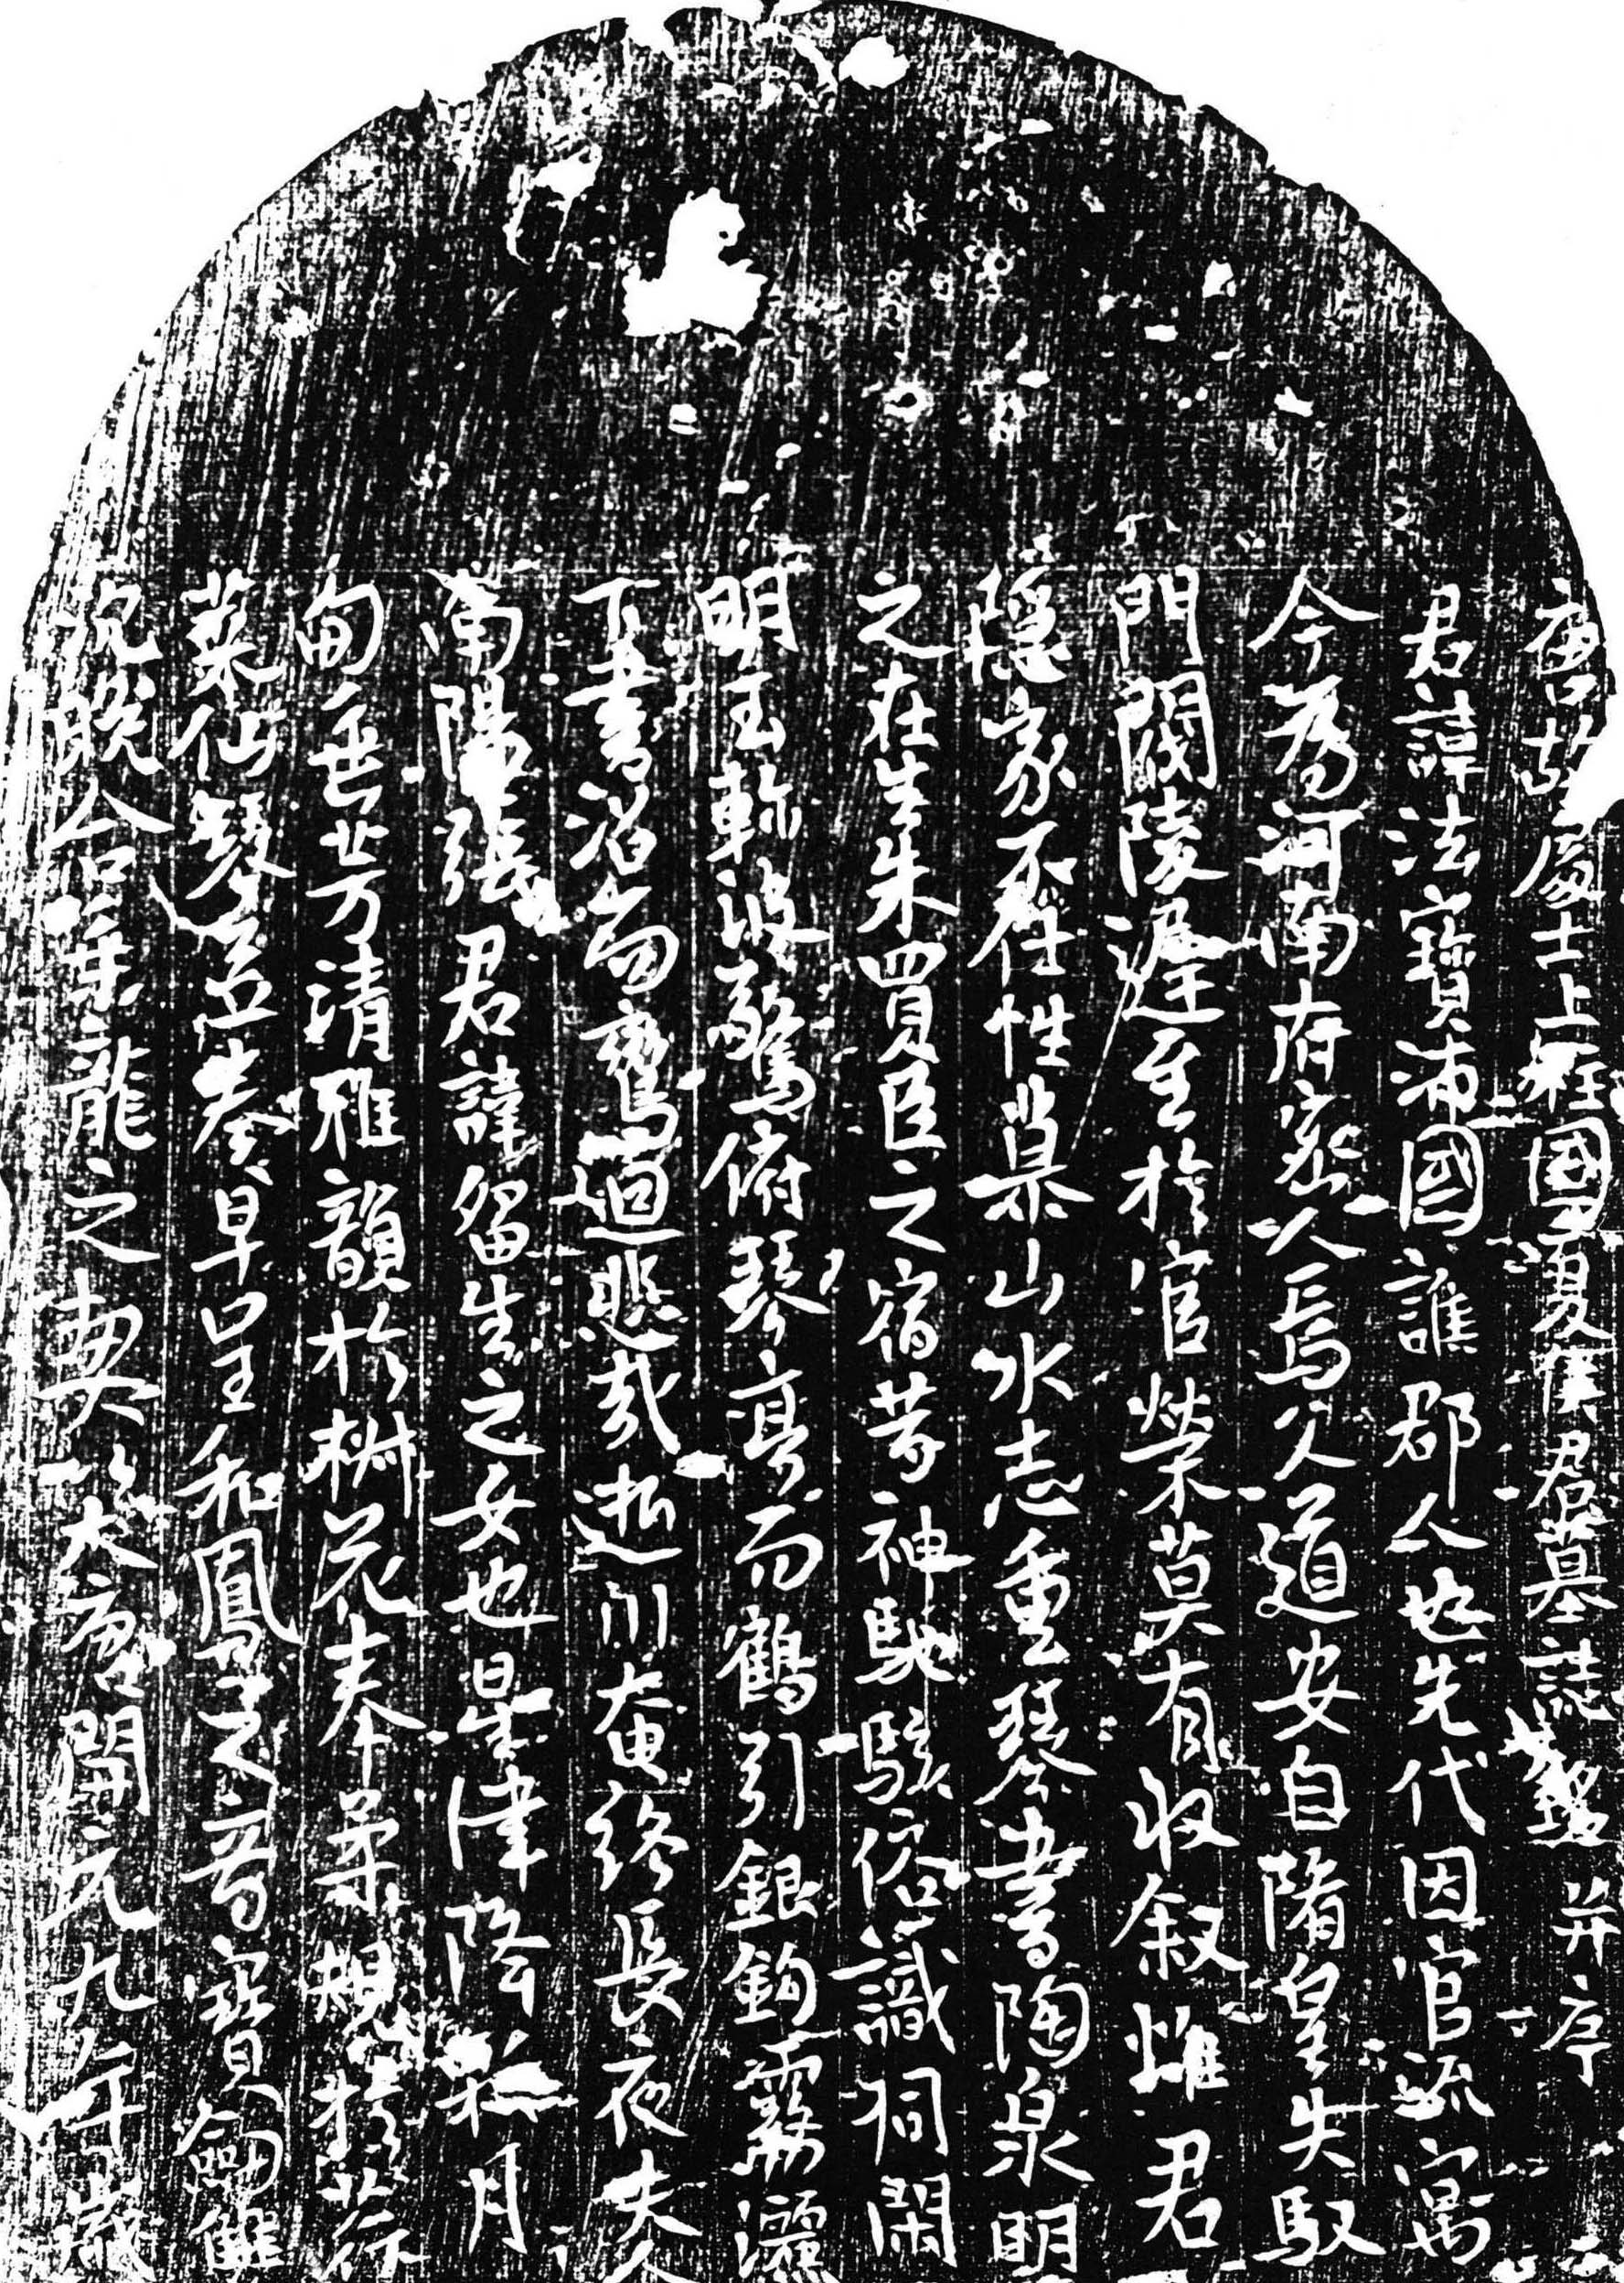 唐故處士上柱國夏侯君墓誌 并序
君諱法寶沛國譙郡人也先代因官流寓
今為河南府密人焉父道安自隋皇失馭
門閥陵遲至於官榮莫有收叙惟君
隱家不仕性慕山水志重琴書陶泉明
之在生朱買臣之宿昔神馳駭俗識洞閑
明玉軫波驚俯琴亭而鶴引銀鉤霧灑
下書沼而鸞迴悲哉逝川奄終長夜夫人
南陽張君諱留生之女也星津降彩月
甸垂芳清雅韻於椒花奉柔規於蘋
菜仙琴並奏早呈和鳳之音寶劍雙
沉晚合乘龍之契以大唐開元九年歲